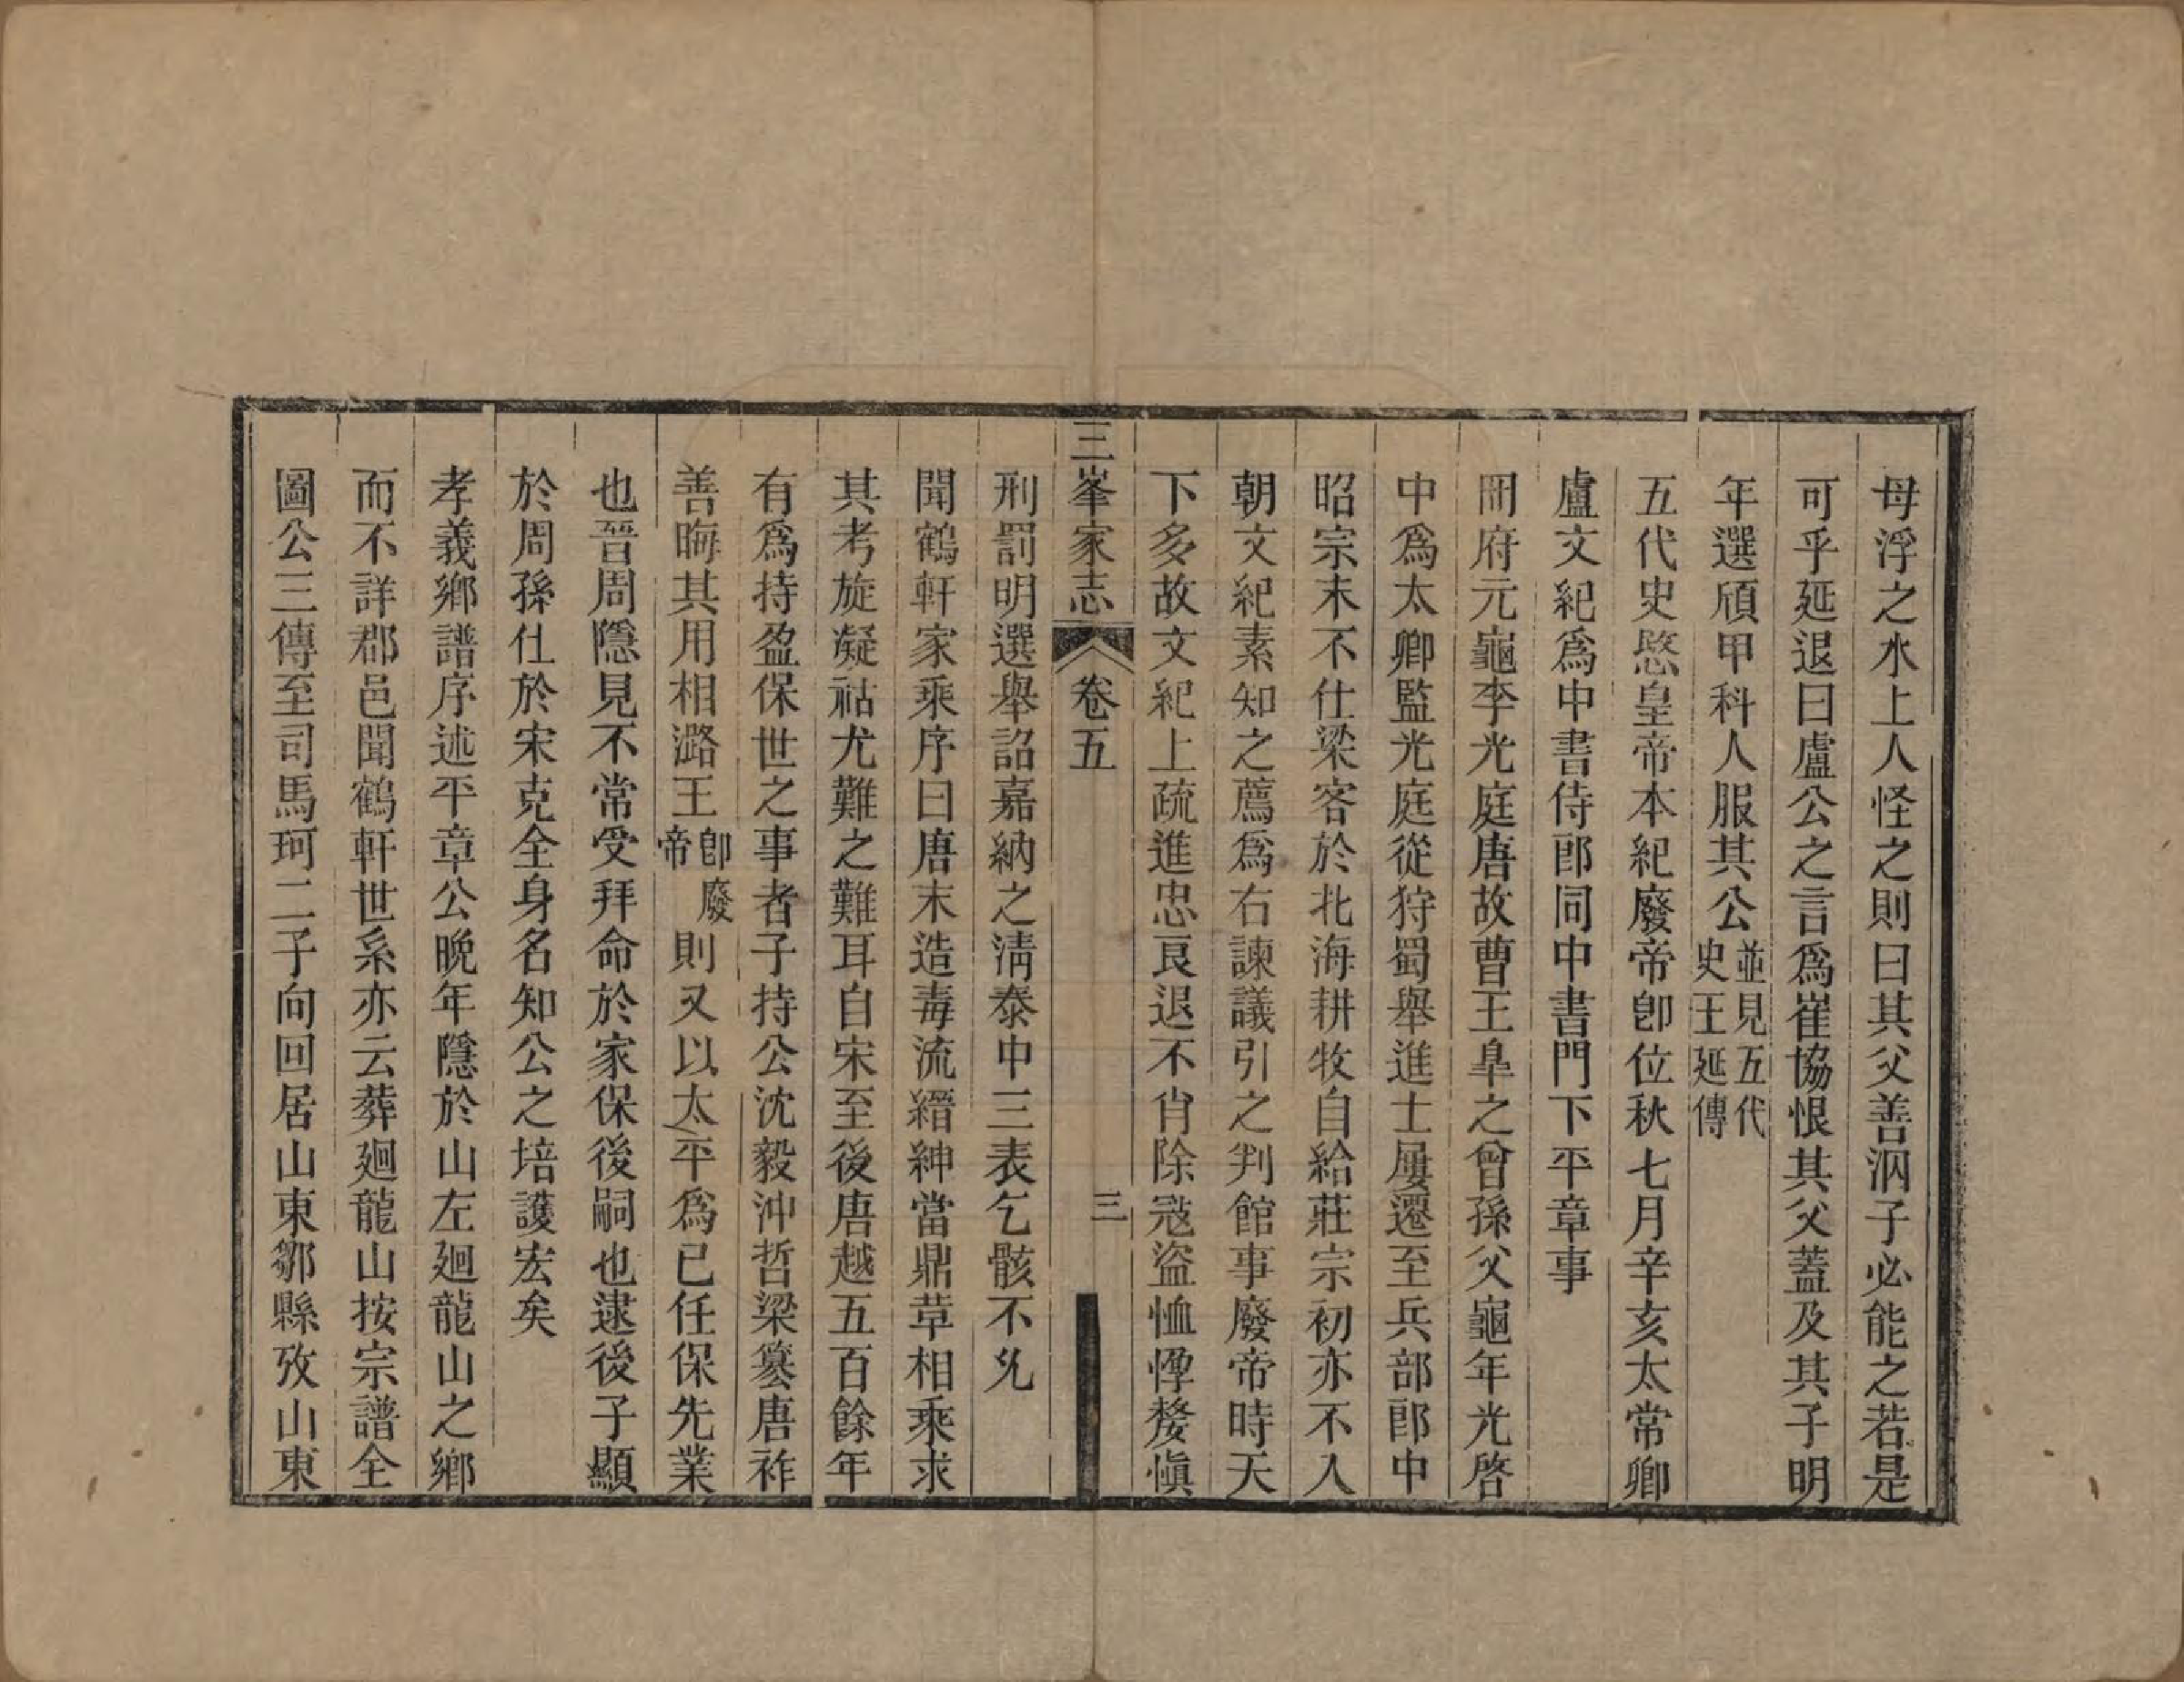 母浮之水上人怪之則曰其父善泅子必能之若是
可乎延退曰盧公之言爲崔協恨其父蓋及其子明
年選頎甲科人服其公並見五代史王延傳
五代史愍皇帝本紀廢帝卽位秋七月辛亥太常卿
盧文紀爲中書侍郎同中書門下平章事
冊府元龜李光庭唐故曹王臯之曾孫父龜年光啓
中爲太卿監光庭從狩蜀舉進士屢遷至兵部郎中
昭宗末不仕梁客於北海耕牧自給莊宗初亦不入
朝文紀素知之薦爲右諫議引之判館事廢帝時天
下多故文紀上疏進忠良退不肖除寇盜恤惸嫠愼
三峯家志 卷五 三
刑罰明選舉詔嘉納之淸泰中三表乞骸不允
聞鶴軒家乘序曰唐末造毒流縉紳當鼎革相乘求
其考旋凝祜尤難之難耳自宋至後唐越五百餘年
有爲持盈保世之事者子持公沈毅沖哲梁簒唐祚
善晦其用相潞王卽廢帝則又以太平爲已任保先業
也晉周隱見不常受拜命於家保後嗣也逮後子顯
於周孫仕於宋克全身名知公之培護宏矣
孝義鄉譜序述平章公晚年隱於山左廻龍山之鄉
而不詳郡邑聞鶴軒世系亦云葬廻龍山按宗譜全
圖公三傳至司馬珂二子向回居山東鄒縣攷山東